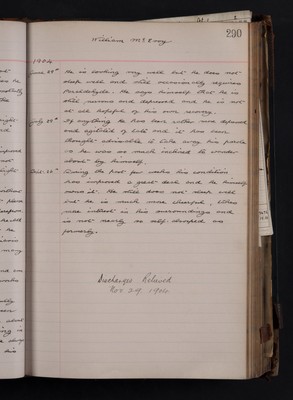 290
William McEvoy
1904
June 29th He is looking very well but he does not
sleep well and still occasionally requires
Paraldehyde. He says himself that he is
still nervous and depressed and he is not
at all hopeful of his own recovery.
July 29th If anything he has been rather more depressed
and agitated of late and it has been
thought advisable to take away his parole
as he was so much inclined to wander
about by himself.
Oct. During the past few weeks his condition
has improved a great deal and he himself
notices it. He still does not sleep well
but he is much more cheerful, takes
more interest in his surroundings and
is not nearly so self absorbed as
formerly.
Discharged Relieved
Nov 29 1904